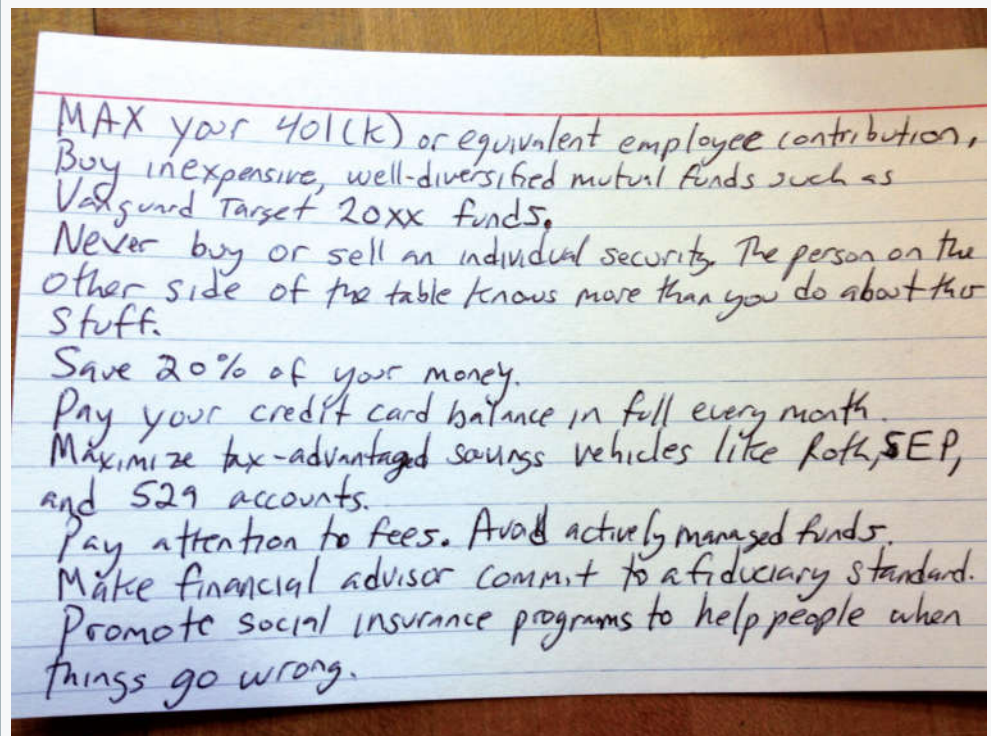 MAX your 401(k) or equivalent employee contribution,
Buy inexpensive, well-diversified mutual funds such as
Vanguard Target 20xx funds.
Never buy or sell an individual security. The person on the
other side of the table knows more than you do about this
stuff.
Save 20% of your money.
Pay your credit card balance in full every month.
Maximize tax-advantaged savings vehicles like Roth, SEP,
and 529 accounts.
Pay attention to fees. Avoid actively managed funds.
Make financial advisor commit to a fiduciary standard.
Promote social insurance programs to help people when
things go wrong.